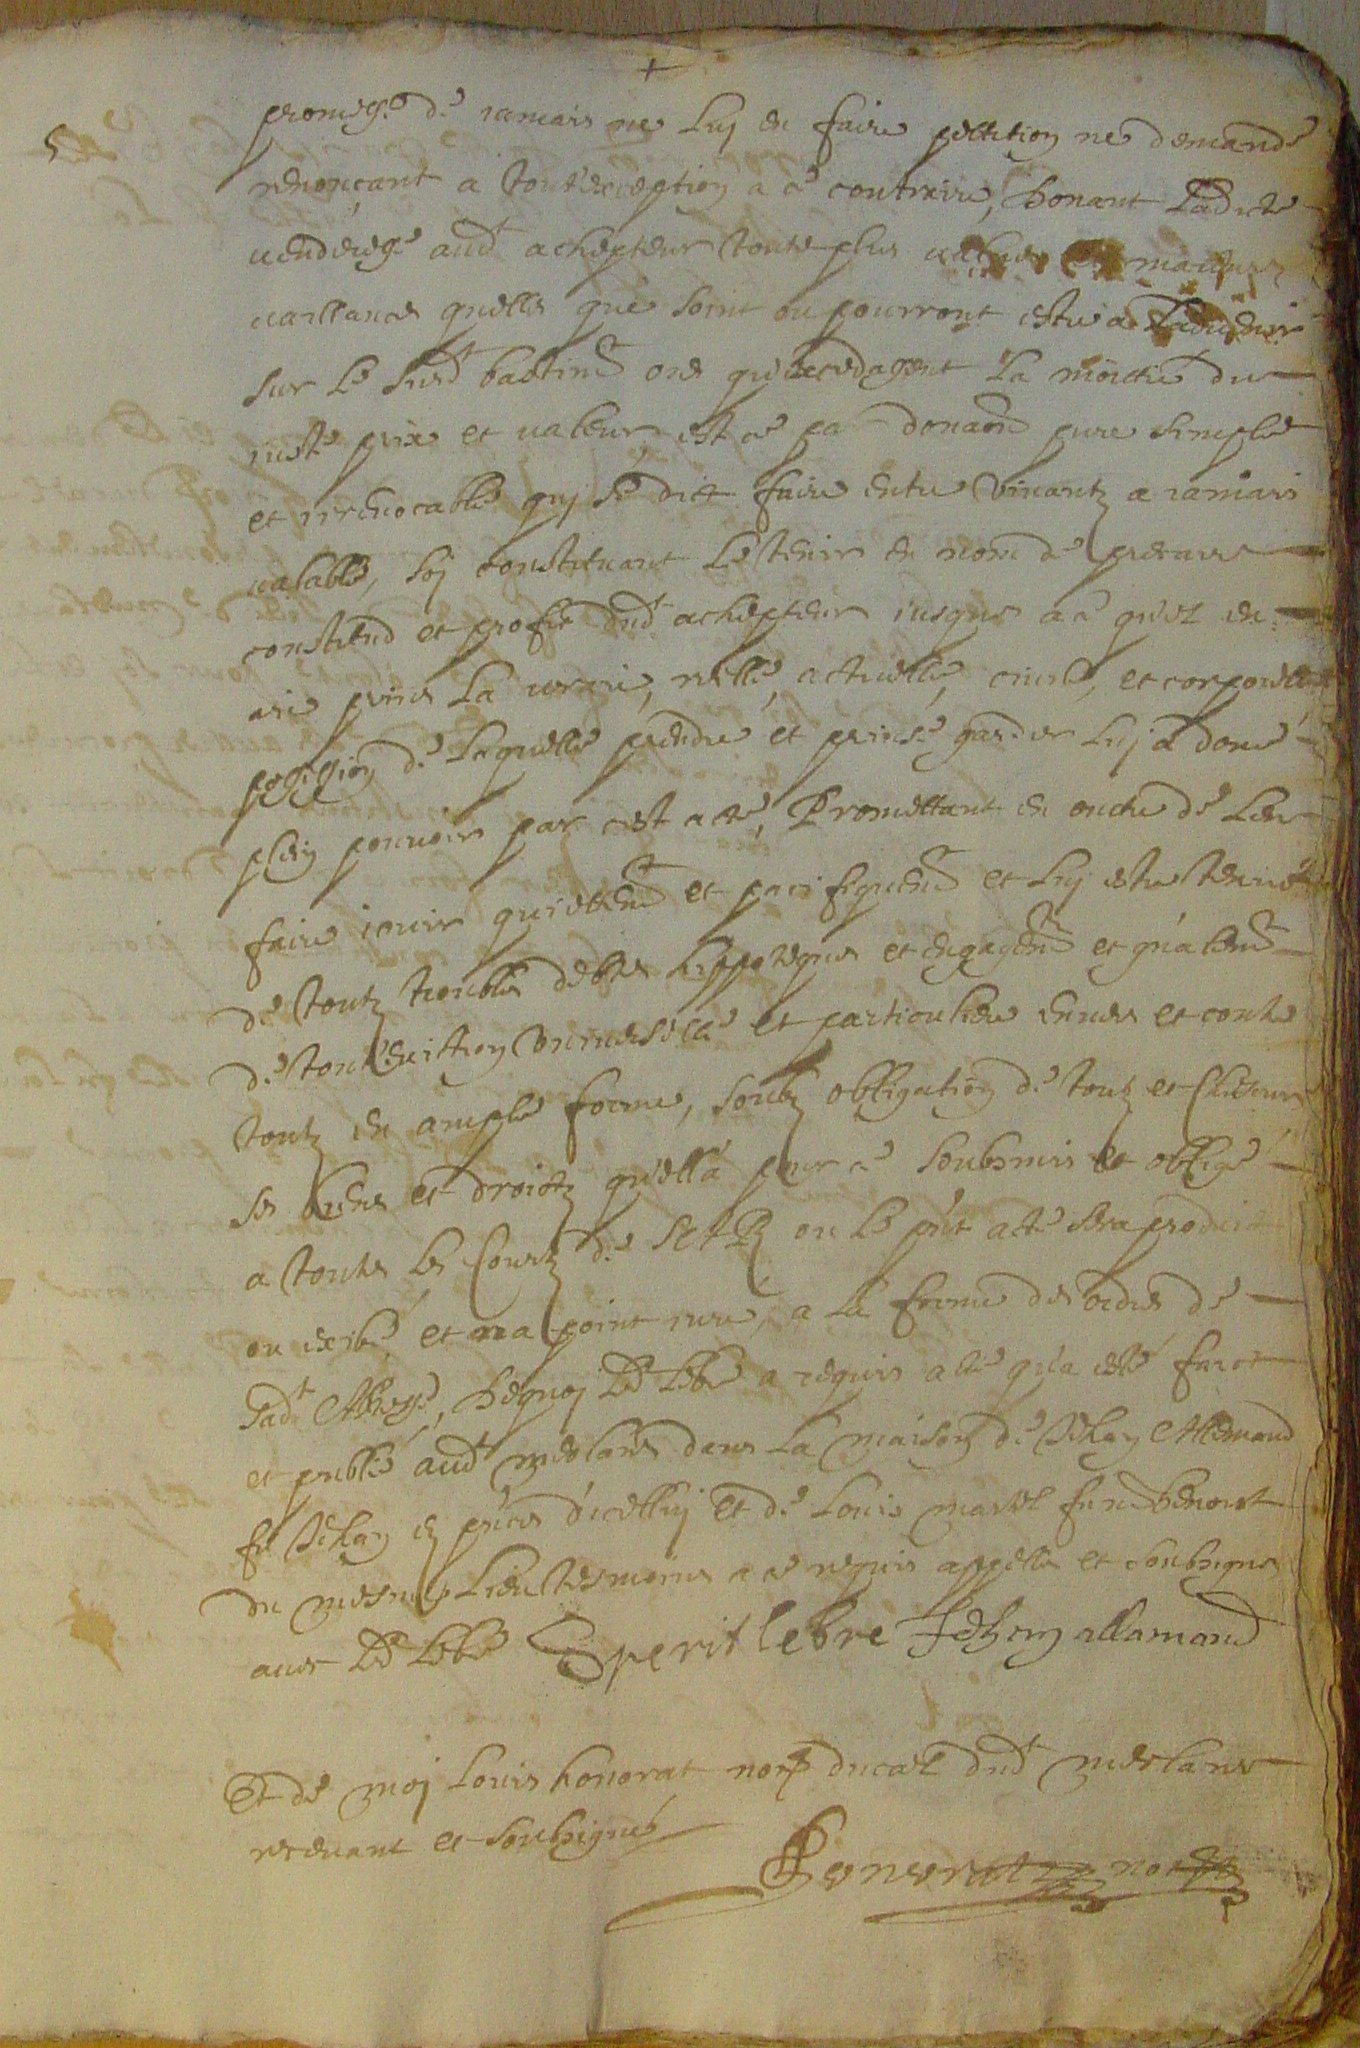 +
5
promesse de iamais ne luy en faire pettition ne demande
renonçant a tout'exception a ce contraire, donant ladicte
venderesse aud.t achepteur toute plus value et maieure
vaillance quelle que soint ou pourront estre a l'advenir
sur le susd.t bastim.t ores qu'excedassent la moictié du
iuste prix et valeur, est ce par donaon pure simple
et irrevocable quy se dict faire entre vivantz a iamais
valable, soy constituant le tenir en nom de precaire
constitud et profit dud.t achepteur iusques a ce qu'il en
aie prins la vraie, reelle, actuelle, civile, et corporelle
possession de laquelle prendre et prinse garder luj a doné
plein pouvoir par cest acte, Promettant en oultre de leur
faire iouir quiettem.t et pacifiquem.t et luj estre tenue
de toutz troubles debtes hippoteques et engagem.t et gn'alem.t
de tout'eviction universelle et particuliere envers et contre
toutz en ample forme, soubz obligation de toutz et chescuns
ses biens et droictz qu'ell'a pour ce soubzmis et obligé
a toutes les Courtz de S A R ou le p'nt acte sera produict
ou exibé, et na point iuré, a la forme des ordres de
sad.t Altesse, De quoj led Lebre a requis acte qu'a esté faict
et publié aud.t meolans dans la maison de Jehan Allemand
fu Jehan es p'nces d'icelluj et de Louis martel fu n benoist
du mesme lieu tesmoins a ce requis appelles et soubsignes
avec led Lebre Esperit lebre Jehan allamand
Et de moj Louis honorat no.re ducal dud.t meolans
recevant et soubsigné
Honorat no.re